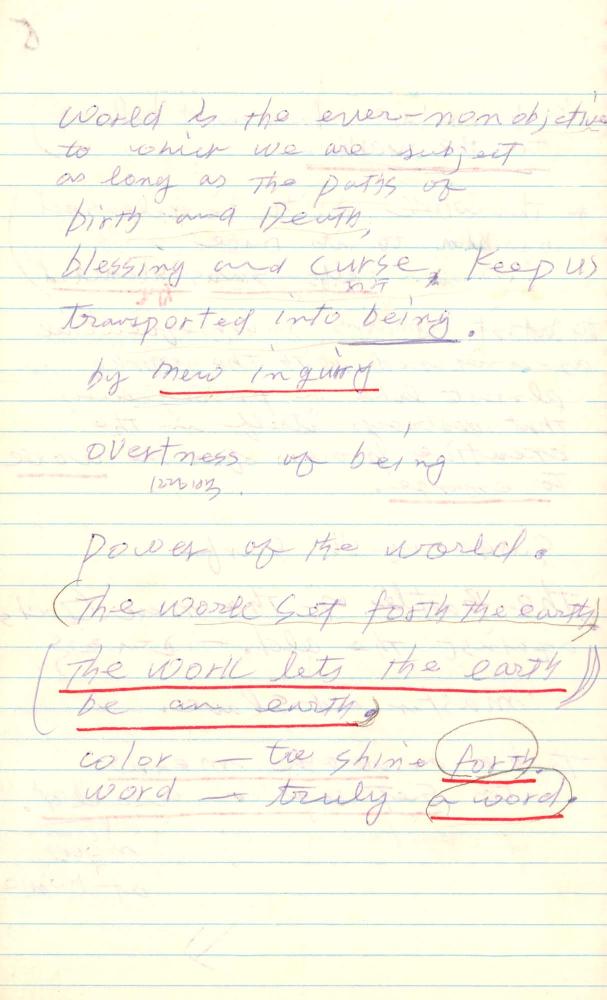 World is the ever-nonobjective
to which we are subject
as long as the paths of
birth and Death,
blessing and curse, Keep us
transported into being.
by new inquiry
overtness of being
power of the world.
(The work set forth the earth)
(The work lets the earth
be an earth.)
color — to shine forth.
word — truly a word.